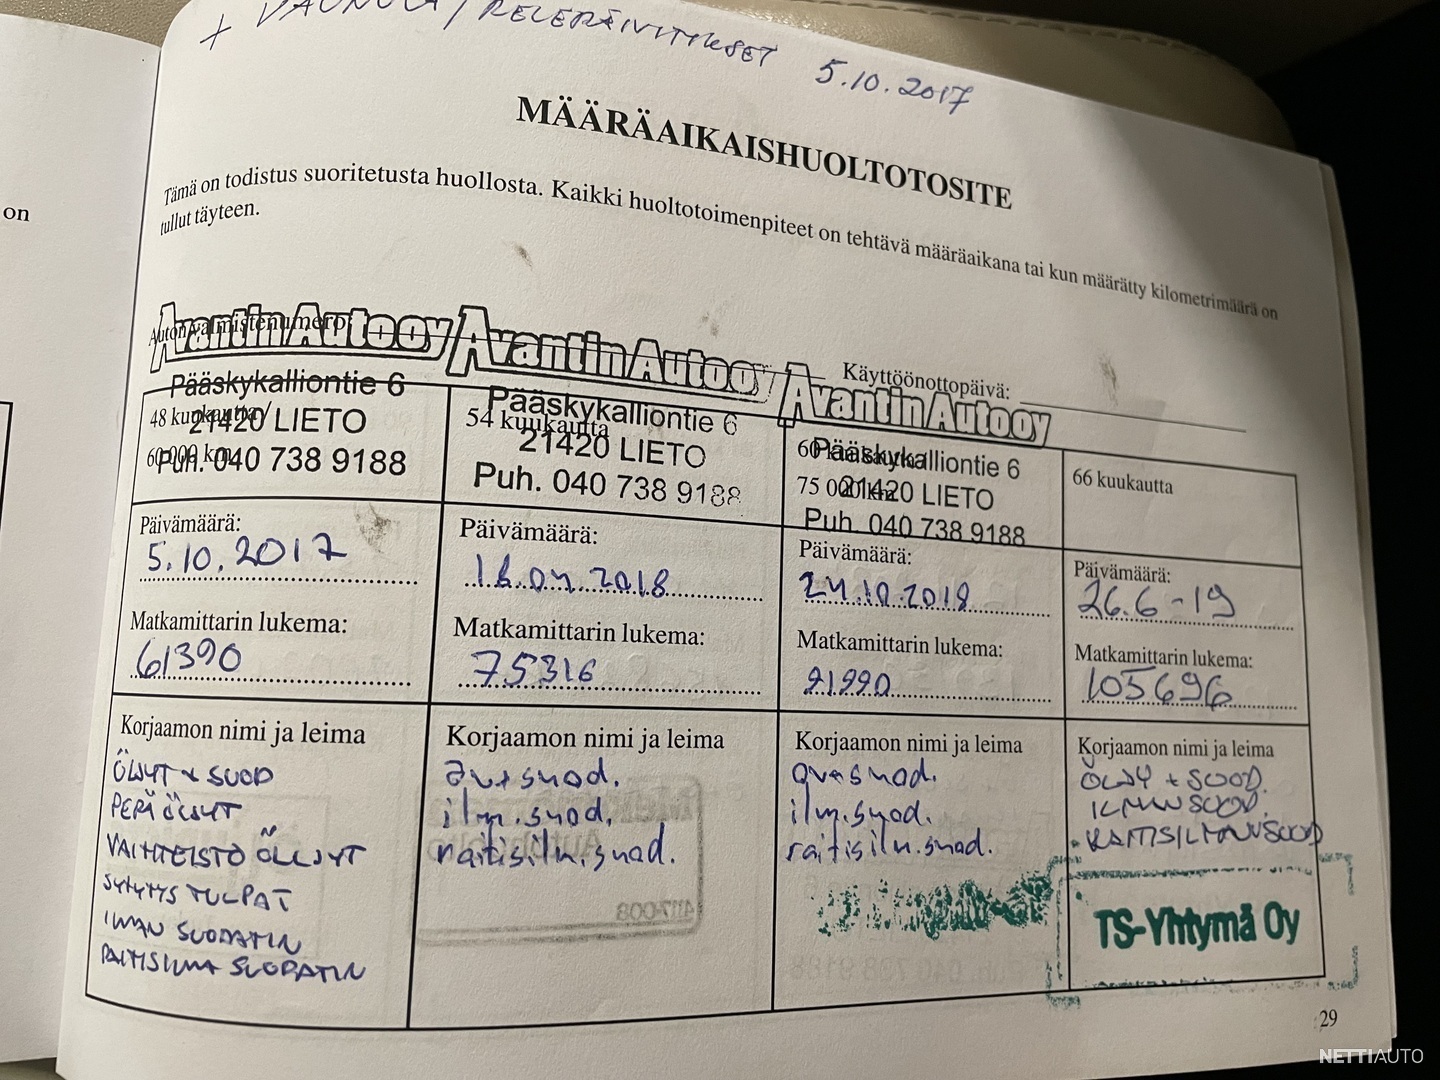 + VAUNUN / RELEPÄIVITYKSET 5.10.2017
MÄÄRÄAIKAISHUOLTOTOSITE
Tämä on todistus suoritetusta huollosta. Kaikki huoltotoimenpiteet on tehtävä määräaikana tai kun määrätty kilometrimäärä on
tullut täyteen.
on
Auton valmistenumero:
Käyttöönottopäivä:
Avantin Auto oy
Pääskykalliontie 6
21420 LIETO
Puh. 040 738 9188
48 kuukautta /
60 000 km
Päivämäärä:
5.10.2017
Matkamittarin lukema:
61390
Korjaamon nimi ja leima
ÖLJYT + SUOD
PERÄ ÖLJYT
VAIHTEISTO ÖLJYT
SYTYTYS TULPAT
ILMAN SUODATIN
RAITISILMA SUODATIN
Avantin Auto oy
Pääskykalliontie 6
21420 LIETO
Puh. 040 738 9188
54 kuukautta
Päivämäärä:
18.04.2018
Matkamittarin lukema:
75316
Korjaamon nimi ja leima
öv+suod.
ilm.suod.
raitisilm.suod.
Avantin Auto oy
Pääskykalliontie 6
21420 LIETO
Puh. 040 738 9188
60 kuukautta
75 000 km
Päivämäärä:
24.10.2018
Matkamittarin lukema:
91990
Korjaamon nimi ja leima
öv+suod.
ilm.suod.
raitisilm.suod.
66 kuukautta
Päivämäärä:
26.6-19
Matkamittarin lukema:
105696
Korjaamon nimi ja leima
ÖLJY + SUOD.
ILMANSUOD.
RAITISILMANSUOD
TS-Yhtymä Oy
29
NETTIAUTO